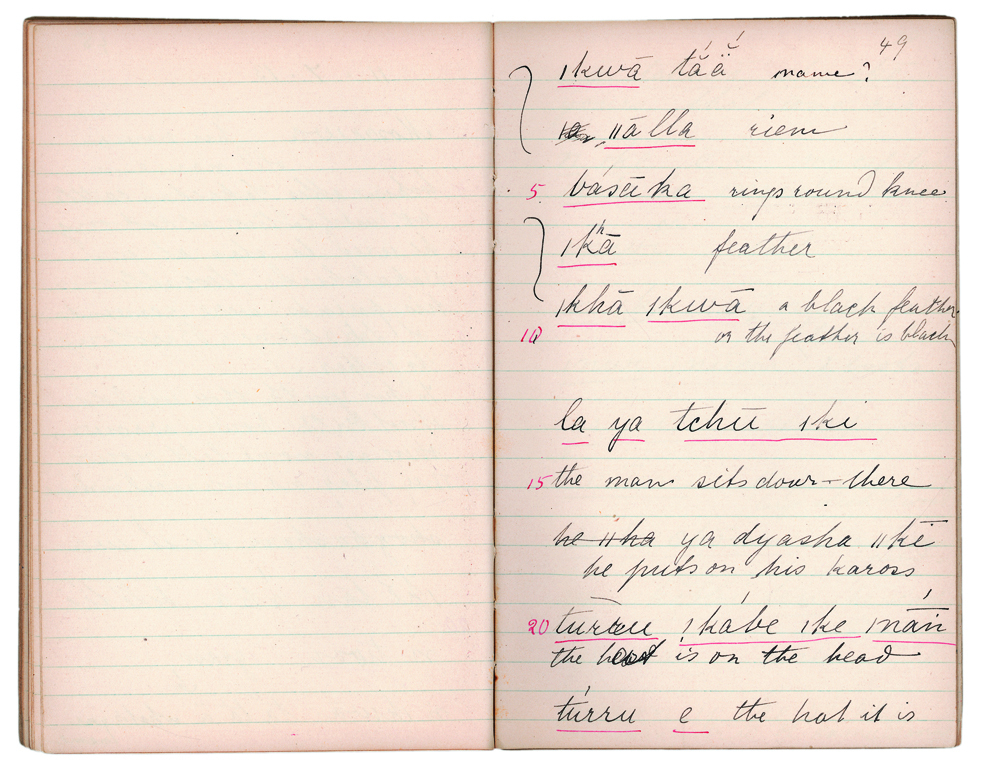 49
ǀkwā tǎ́ä̌́ name?
ǁālla riem
5. básēka rings round knee
ǀkʰā feather
ǀkhā ǀkwā a black feather
10 or the feather is black
la ya tchū ǀki
15 the man sits down – there
he ǁha ya dyasha ǁkē
he puts on his kaross
20 turru ǀkábe ǀke ǀnā́n
the hat is on the head
túrru e the hat it is